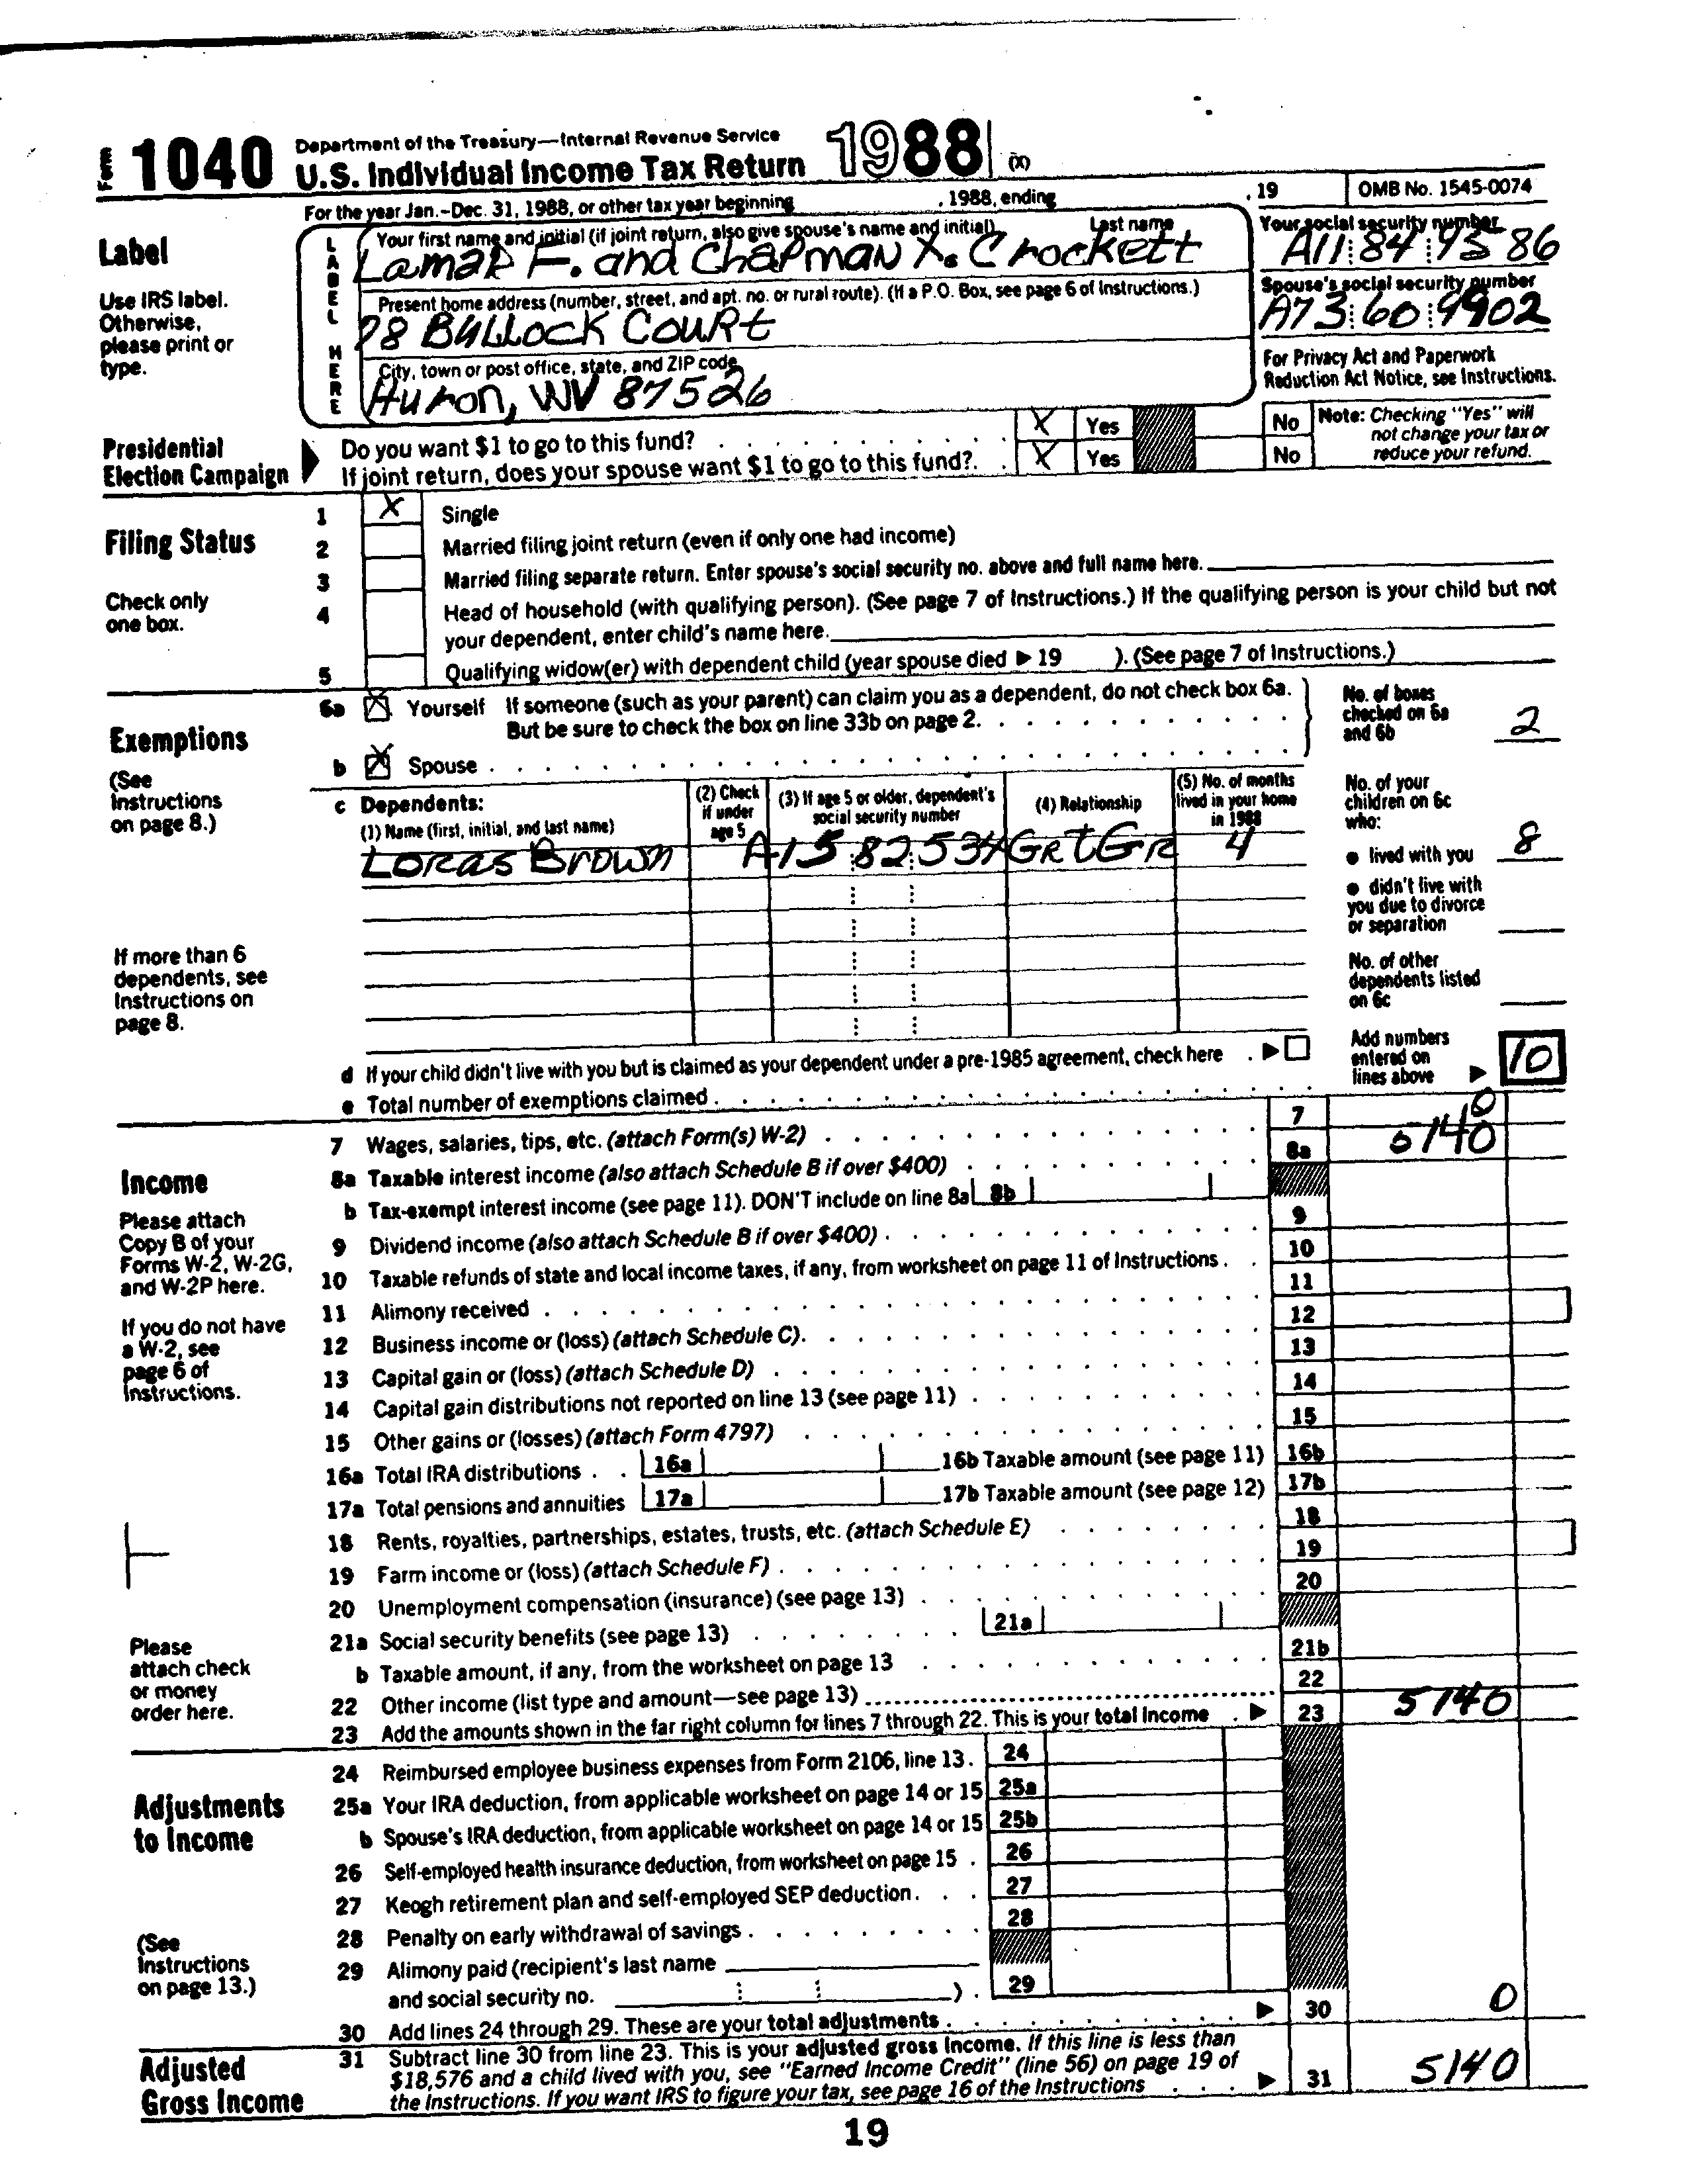 Form 1040 Department of the Treasury—Internal Revenue Service
U.S. Individual Income Tax Return 1988 (X)
For the year Jan.–Dec. 31, 1988, or other tax year beginning , 1988, ending , 19 OMB No. 1545-0074
Label
Use IRS label. Otherwise, please print or type.
LABEL HERE
Your first name and initial (if joint return, also give spouse's name and initial) Last name
Lamar F. and Chapman X. Crockett
Your social security number
A11 84 9386
Present home address (number, street, and apt. no. or rural route). (If a P.O. Box, see page 6 of Instructions.)
78 Bullock Court
Spouse's social security number
A73 60 9902
City, town or post office, state, and ZIP code
Huron, WV 87526
For Privacy Act and Paperwork Reduction Act Notice, see Instructions.
Presidential Election Campaign
Do you want $1 to go to this fund? X Yes No
If joint return, does your spouse want $1 to go to this fund? X Yes No
Note: Checking "Yes" will not change your tax or reduce your refund.
Filing Status
Check only one box.
1 X Single
2 Married filing joint return (even if only one had income)
3 Married filing separate return. Enter spouse's social security no. above and full name here.
4 Head of household (with qualifying person). (See page 7 of Instructions.) If the qualifying person is your child but not
your dependent, enter child's name here.
5 Qualifying widow(er) with dependent child (year spouse died ▶ 19 ). (See page 7 of Instructions.)
Exemptions
(See Instructions on page 8.)
6a X Yourself If someone (such as your parent) can claim you as a dependent, do not check box 6a.
But be sure to check the box on line 33b on page 2.
b X Spouse
No. of boxes checked on 6a and 6b 2
c Dependents:
(1) Name (first, initial, and last name)
(2) Check if under age 5
(3) If age 5 or older, dependent's social security number
(4) Relationship
(5) No. of months lived in your home in 1988
Loras Brown A15 82 534 GRtGR 4
No. of your children on 6c who:
● lived with you 8
● didn't live with you due to divorce or separation
No. of other dependents listed on 6c
If more than 6 dependents, see Instructions on page 8.
d If your child didn't live with you but is claimed as your dependent under a pre-1985 agreement, check here ▶
e Total number of exemptions claimed
Add numbers entered on lines above ▶ 10
Income
Please attach Copy B of your Forms W-2, W-2G, and W-2P here.
If you do not have a W-2, see page 6 of Instructions.
Please attach check or money order here.
7 Wages, salaries, tips, etc. (attach Form(s) W-2) 7 0
8a Taxable interest income (also attach Schedule B if over $400) 8a 5140
b Tax-exempt interest income (see page 11). DON'T include on line 8a 8b
9 Dividend income (also attach Schedule B if over $400) 9
10 Taxable refunds of state and local income taxes, if any, from worksheet on page 11 of Instructions 10
11 Alimony received 11
12 Business income or (loss) (attach Schedule C) 12
13 Capital gain or (loss) (attach Schedule D) 13
14 Capital gain distributions not reported on line 13 (see page 11) 14
15 Other gains or (losses) (attach Form 4797) 15
16a Total IRA distributions 16a 16b Taxable amount (see page 11) 16b
17a Total pensions and annuities 17a 17b Taxable amount (see page 12) 17b
18 Rents, royalties, partnerships, estates, trusts, etc. (attach Schedule E) 18
19 Farm income or (loss) (attach Schedule F) 19
20 Unemployment compensation (insurance) (see page 13) 20
21a Social security benefits (see page 13) 21a
b Taxable amount, if any, from the worksheet on page 13 21b
22 Other income (list type and amount—see page 13) 22
23 Add the amounts shown in the far right column for lines 7 through 22. This is your total income ▶ 23 5140
Adjustments to Income
(See Instructions on page 13.)
24 Reimbursed employee business expenses from Form 2106, line 13. 24
25a Your IRA deduction, from applicable worksheet on page 14 or 15 25a
b Spouse's IRA deduction, from applicable worksheet on page 14 or 15 25b
26 Self-employed health insurance deduction, from worksheet on page 15 26
27 Keogh retirement plan and self-employed SEP deduction 27
28 Penalty on early withdrawal of savings 28
29 Alimony paid (recipient's last name
and social security no. ) 29
30 Add lines 24 through 29. These are your total adjustments ▶ 30 0
Adjusted Gross Income
31 Subtract line 30 from line 23. This is your adjusted gross income. If this line is less than
$18,576 and a child lived with you, see "Earned Income Credit" (line 56) on page 19 of
the Instructions. If you want IRS to figure your tax, see page 16 of the Instructions ▶ 31 5140
19